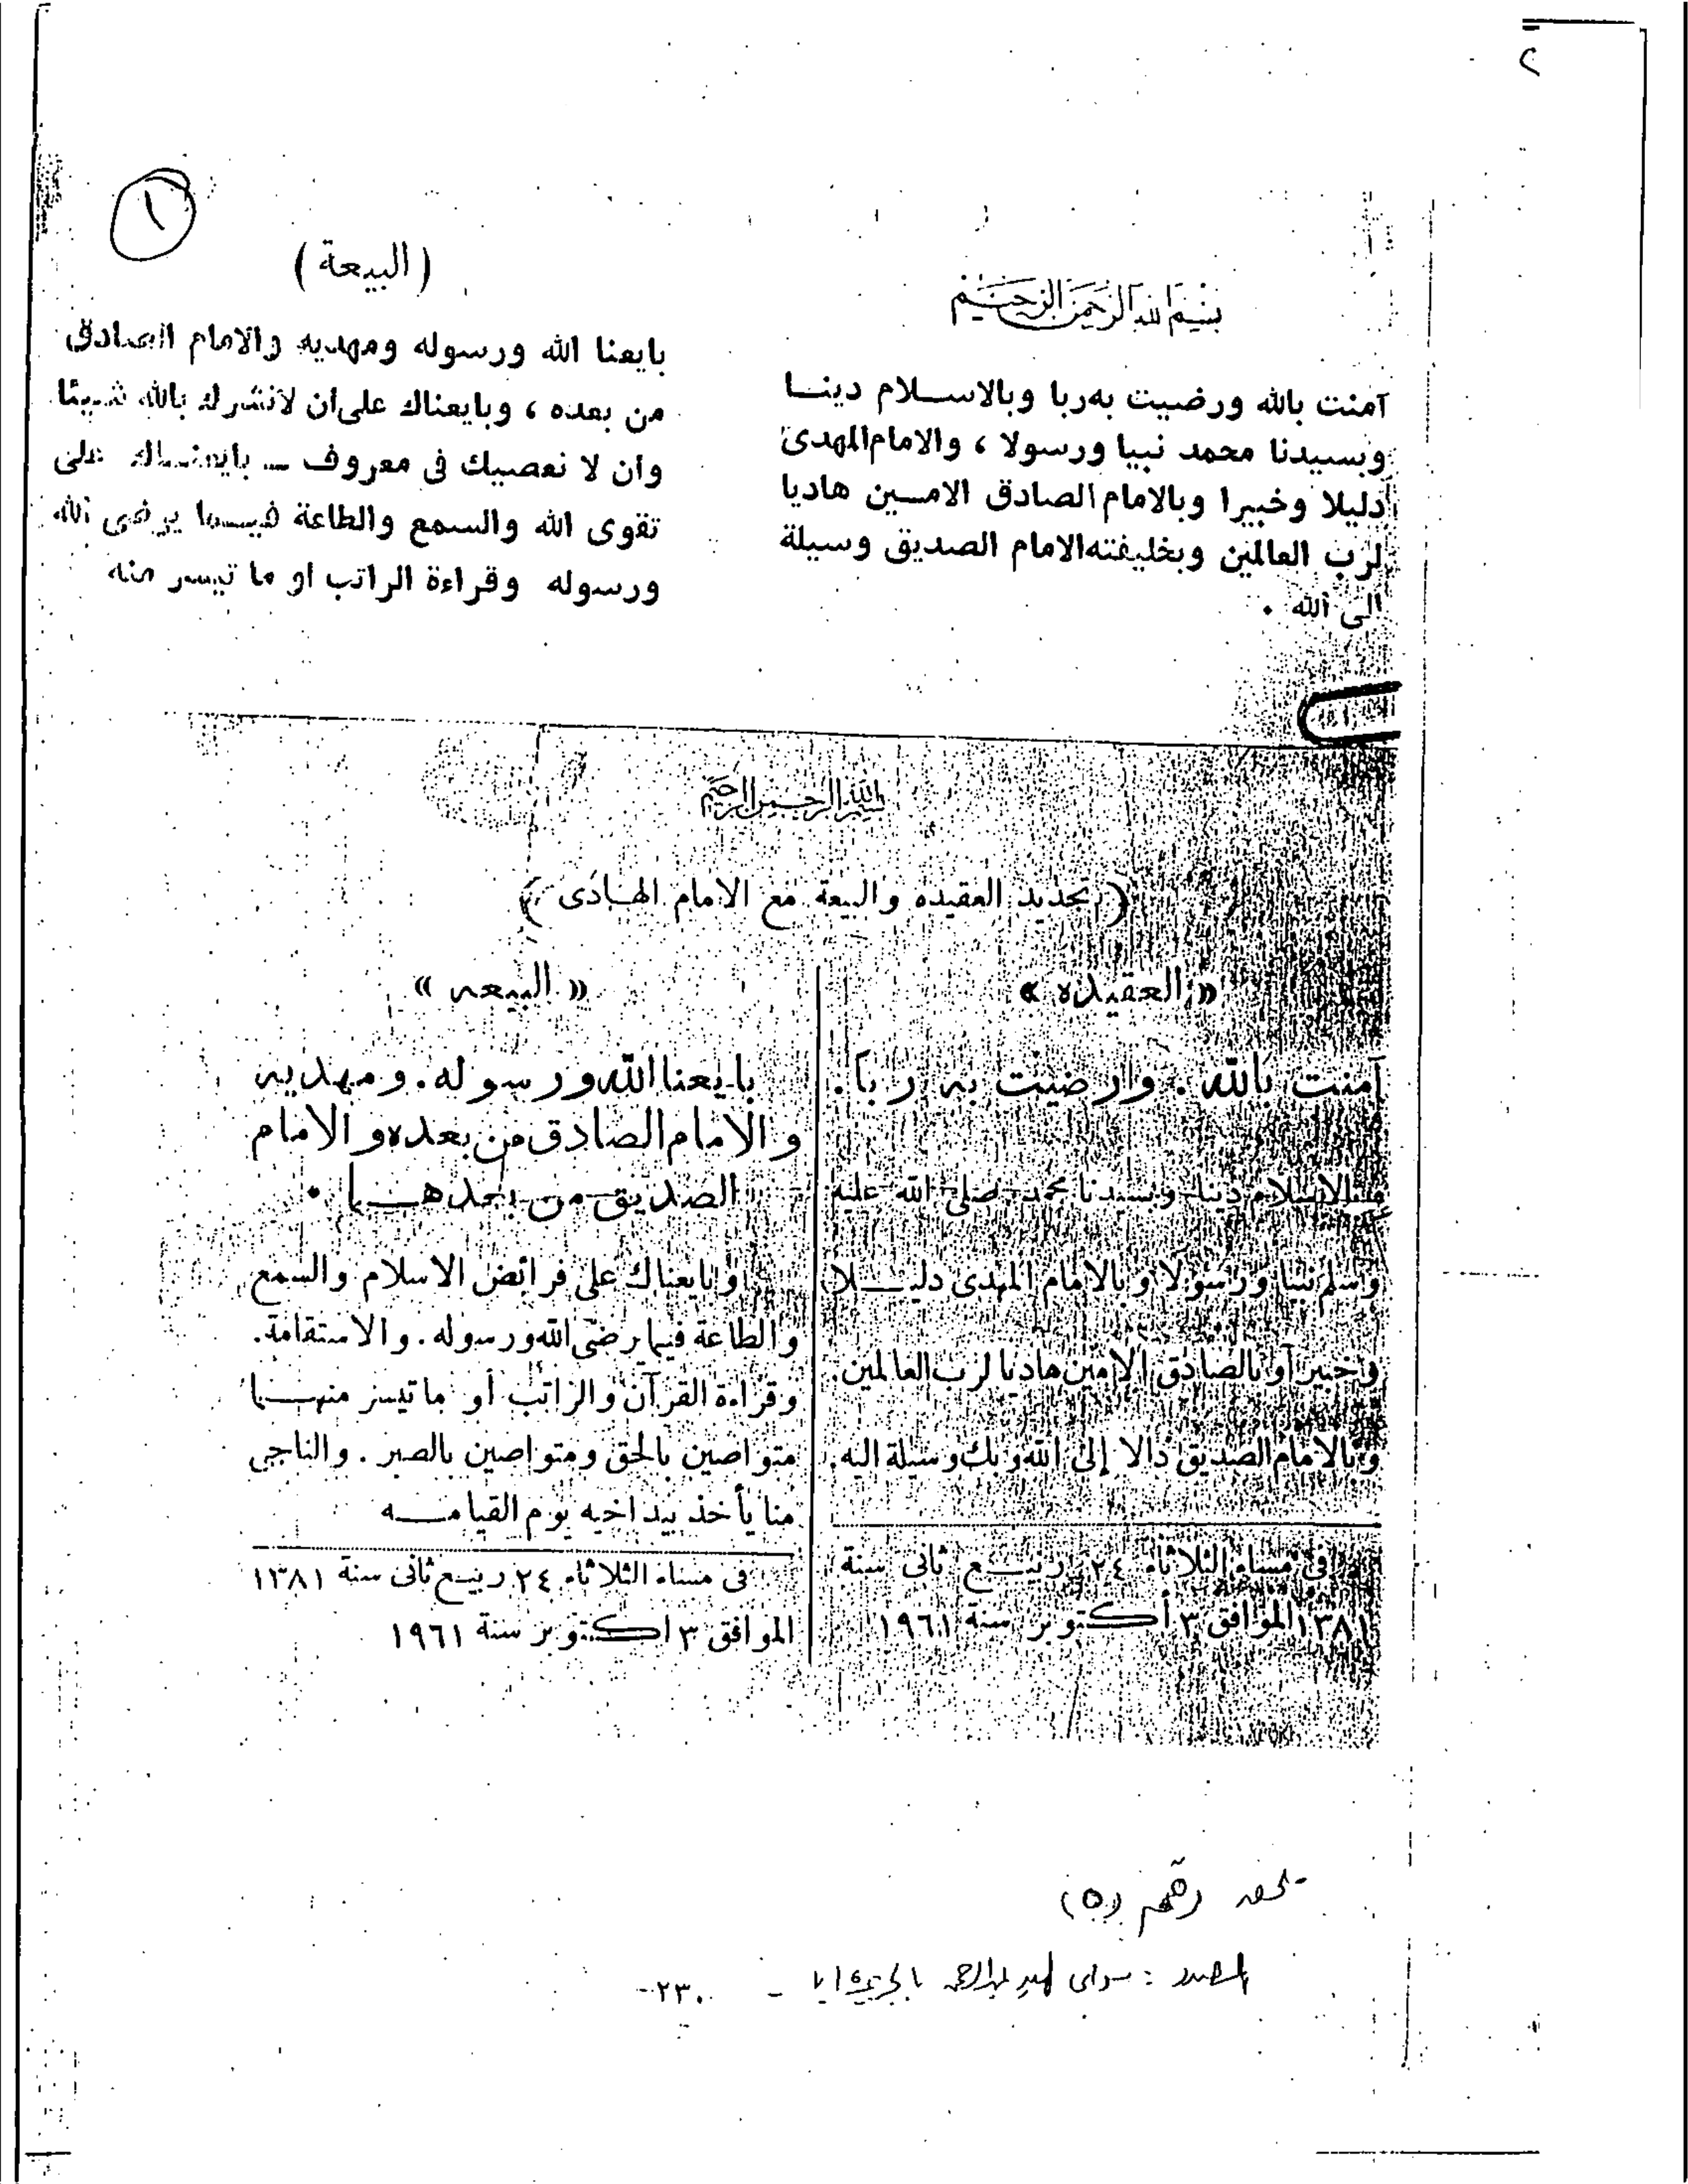 ٢
١
بسم الله الرحمن الرحيم
آمنت بالله ورضيت به ربا وبالاسلام دينا
وبسيدنا محمد نبيا ورسولا ، والامام المهدى
دليلا وخبيرا وبالامام الصادق الامين هاديا
لرب العالمين وبخليفته الامام الصديق وسيلة
الى الله .
( البيعة )
بايعنا الله ورسوله ومهديه والامام الصادق
من بعده ، وبايعناك على أن لانشرك بالله شيئا
وأن لا نعصيك فى معروف — بايعناك على
تقوى الله والسمع والطاعة فيما يرضى الله
ورسوله وقراءة الراتب او ما تيسر منه
بسم الله الرحمن الرحيم
( تجديد العقيده والبيعة مع الامام الهادى )
« العقيده »
آمنت بالله . وارضيت به ربا .
الاسلام دينا وبسيدنا محمد صلى الله عليه
وسلم نبيا ورسولا وبالامام المهدى دليلا
وخبير آو بالصادق الامين هاديا لرب العالمين .
وبالامام الصديق دالا إلى الله وبك وسيلة اليه .
فى مساء الثلاثاء ٢٤ ربيع ثانى سنة
١٣٨١ الموافق ٣ أكتوبر سنة ١٩٦١
« البيعه »
بايعنا الله ورسوله . ومهديه
والامام الصادق من بعده والامام
الصديق من بعدهما .
وبايعناك على فرائض الاسلام والسمع
والطاعة فيما رضى الله ورسوله . والاستقامة .
وقراءة القرآن والراتب أو ما تيسر منها
متواصين بالحق ومتواصين بالصبر . والناجى
منا يأخذ بيد اخيه يوم القيامه
فى مساء الثلاثاء ٢٤ ربيع ثانى سنة ١٣٨١
الموافق ٣ اكتوبر سنة ١٩٦١
ملحق رقم (٥)
المصدر : عبدالرحمن بالجزيرة ابا - ٢٣٠